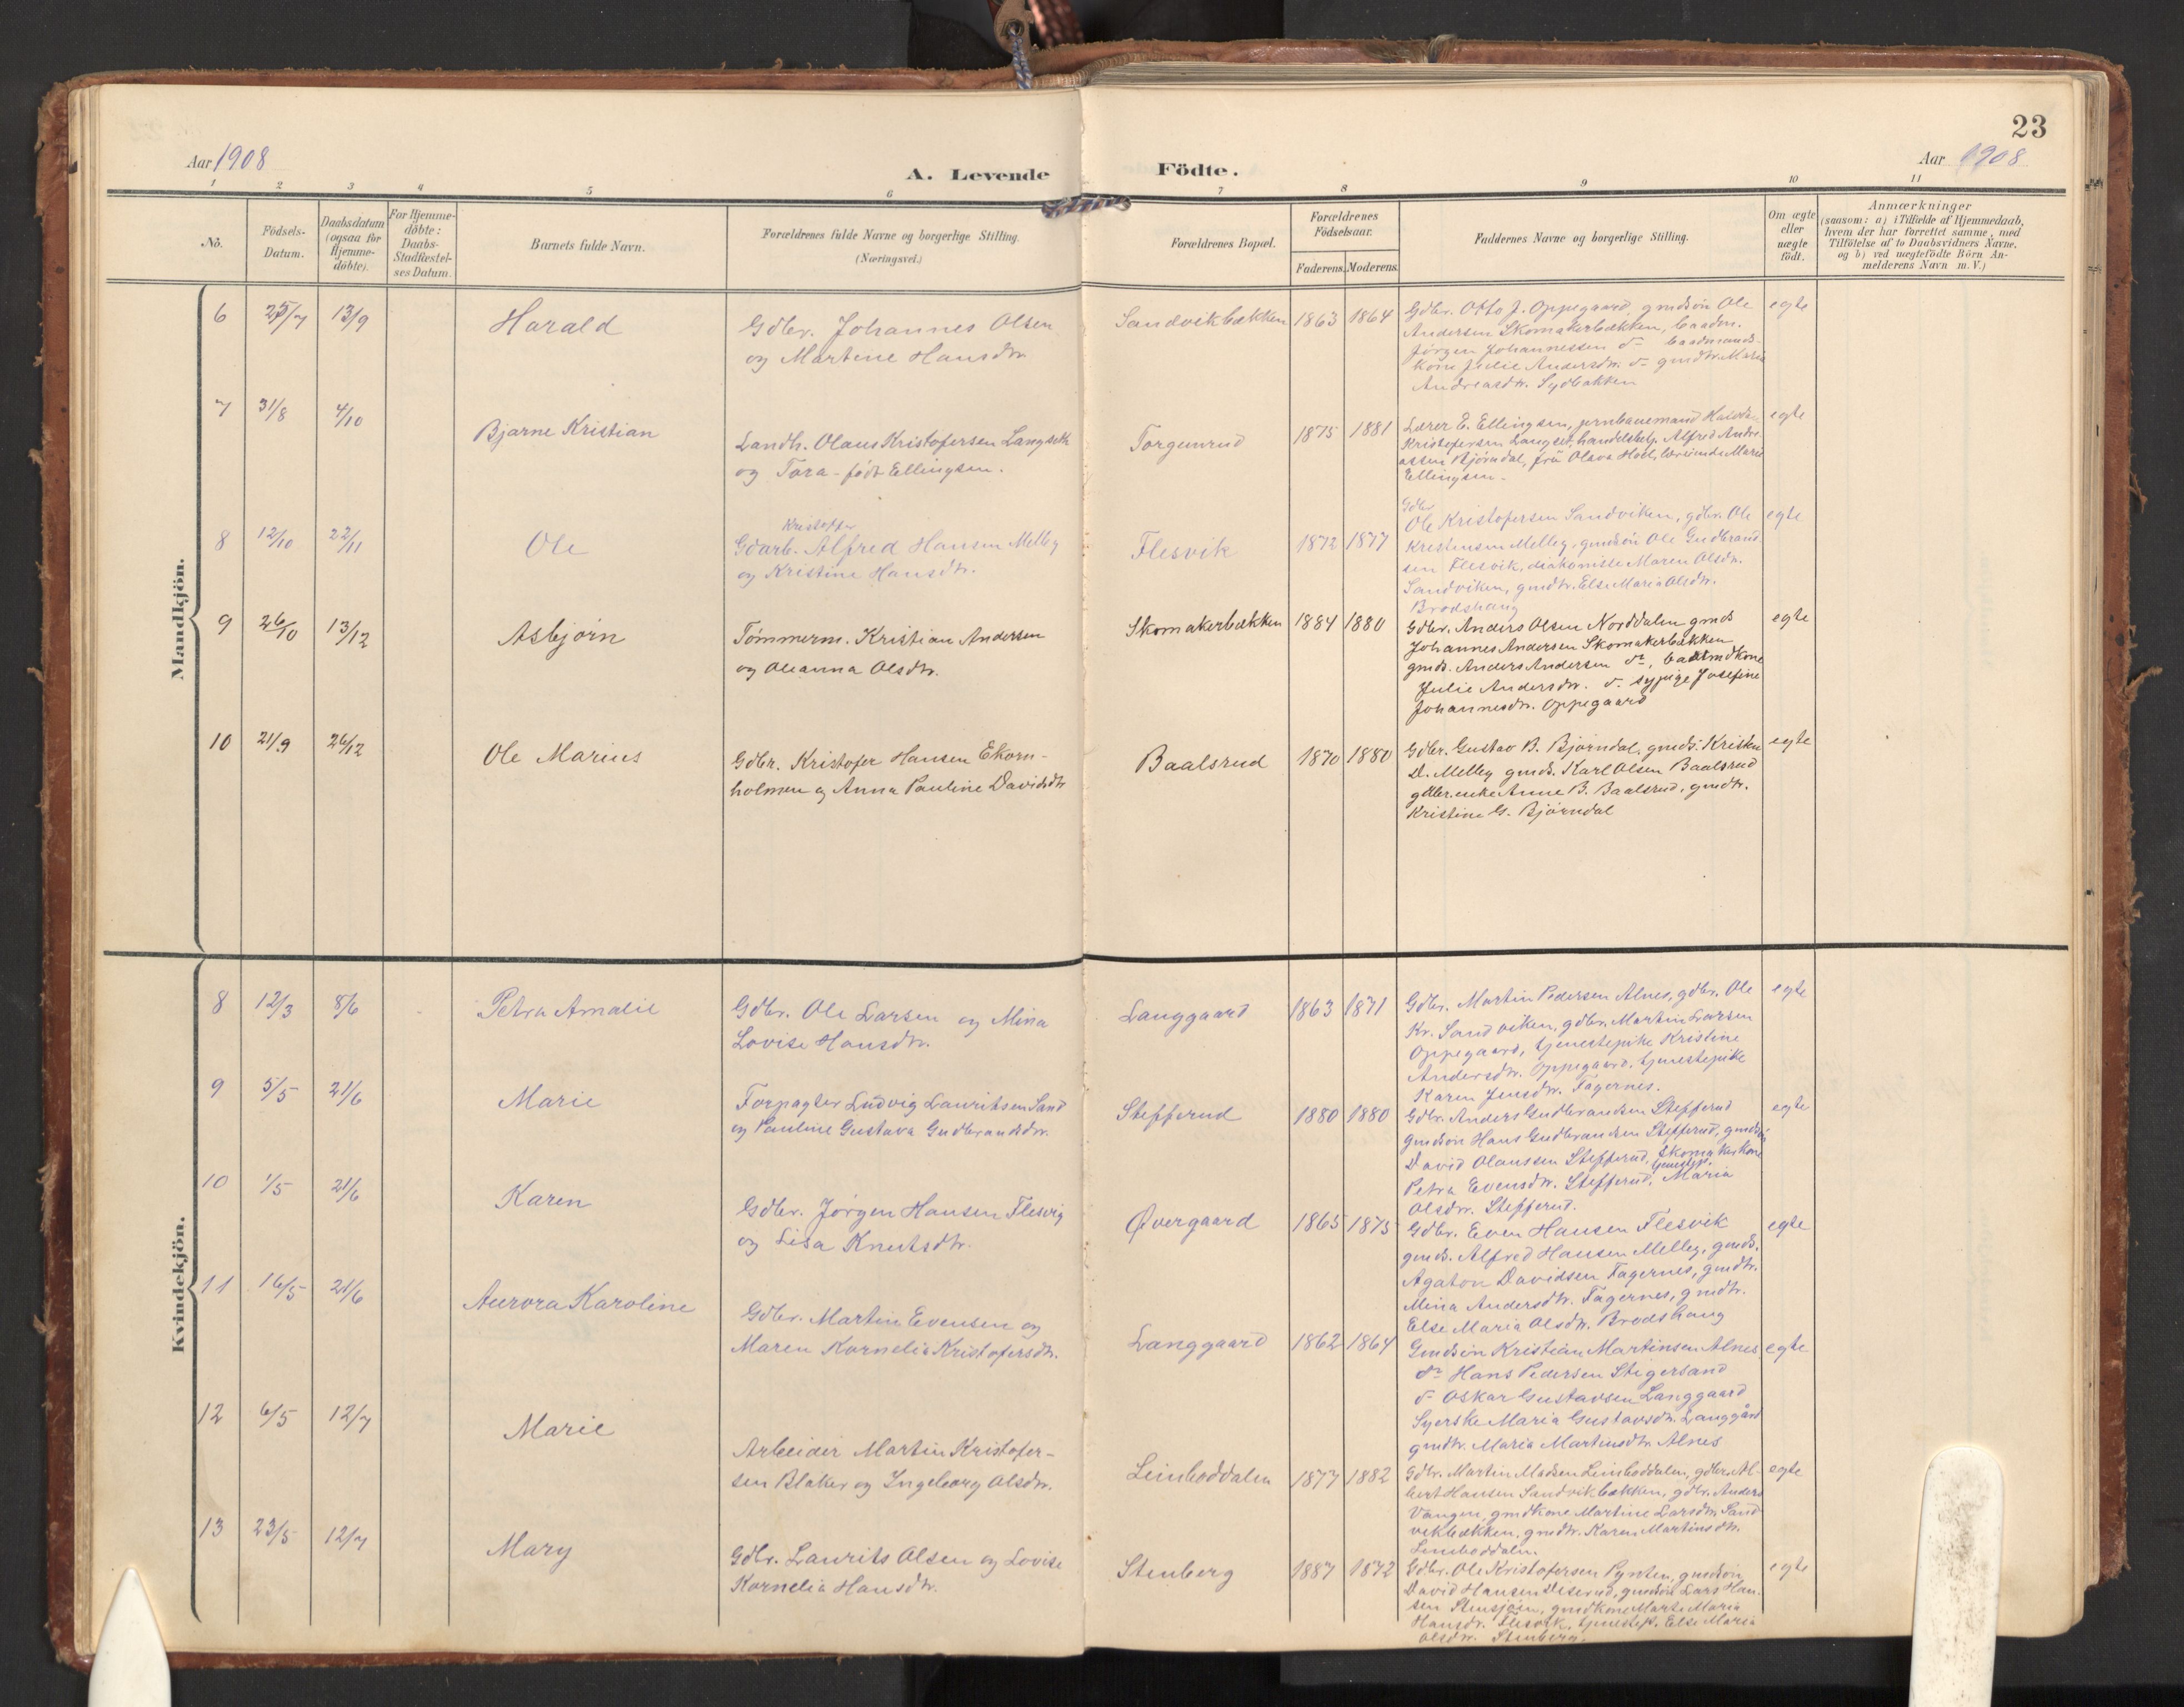 23
Aar 1908
A. Levende
Födte.
Aar 1908
1 2 3 4 5 6 7 8 9 10 11
No.
Födsels-
Datum.
Daabsdatum
(ogsaa for
Hjemme-
döbte).
For Hjemme-
döbte:
Daabs-
Stadfæstel-
ses Datum.
Barnets fulde Navn.
Forældrenes fulde Navne og borgerlige Stilling.
(Næringsvei.)
Forældrenes Bopæl.
Forældrenes
Födselsaar.
Faderens. Moderens.
Faddernes Navne og borgerlige Stilling.
Om ægte
eller
uægte
födt.
Anmærkninger
(saasom: a) i Tilfælde af Hjemmedaab,
hvem der har forrettet samme, med
Tilföielse af to Daabsvidners Navne,
og b) ved uægtefödte Börn An-
melderens Navn m. V.)
Mandkjön.
6 25/7 13/9
Harald
Gdbr. Johannes Olsen
og Martine Hansdtr.
Sandvikbækken 1863 1864
Gdbr. Otto J. Oppegaard, gmdsön Ole
Andersen Skomakerbækken, baadm.
Jørgen Johannessen do baadmands-
kone Julie Andersdtr. do gmdtr. Maria
Andreasdtr. Sydbakken
egte
7 31/8 4/10
Bjarne Kristian
Landh. Olaus Kristofersen Langseth
og Tora - født Ellingsen.
Torgunrud 1875 1881
Lærer E. Ellingsen, jernbanemand
Kristofersen Langset, handelsbetj. Alfred Andre-
assen Bjørndal, fru Olava Hoel, lærerinde Marie
Ellingsen.
egte
8 12/10 22/11
Ole
Kristoffer
Gdarb. Alfred Hansen Melby
og Kristine Hansdtr.
Flesvik 1872 1877
Gdbr.
Ole Kristofersen Sandviken, gdbr. Ole
Kristensen Melby, gmdsön Ole Gudbrand
sen Flesvik, diakonisse Maren Olsdtr.
Sandviken, gmdtr. Else Maria Olsdtr.
Brodshaug
egte
9 26/10 13/12
Asbjørn
Tømmerm. Kristian Andersen
og Oleanna Olsdtr.
Skomakerbækken 1884 1880
Gdbr. Anders Olsen Norddalen gmds
Johannes Andersen Skomakerbækken
gmds. Anders Andersen do, baadmdkone
Julie Andersdtr. do sypige Josefine
Johannesdtr. Oppegaard
egte
10 21/9 26/12
Ole Marius
Gdbr. Kristofer Hansen Ekorn-
holmen og Anna Pauline Davidsdtr
Baalsrud 1870 1880
Gdbr. Gustav B. Bjørndal, gmds. Kristen
D. Melby gmds. Karl Olsen Baalsrud
gdbr.enke Anne B. Baalsrud, gmdtr.
Kristine G. Bjørndal
egte
Kvindekjön.
8 12/3 8/6
Petra Amalie
Gdbr. Ole Larsen og Mina
Lovise Hansdtr.
Langgaard 1863 1871
Gdbr. Martin Pedersen Alnes, gdbr. Ole
Kr. Sandviken, gdbr. Martin Larsen
Oppegaard, tjenestepike Kristine
Andersdtr. Oppegaard, tjenestepike
Karen Jensdtr. Fagernes.
egte
9 5/5 21/6
Marie
Forpagter Ludvig Lauritsen Sand
og Pauline Gustava Gudbrandsdtr.
Stefferud 1880 1880
Gdbr. Anders Gudbrandsen Stefferud
gmdsön Hans Gudbrandsen Stefferud, gmdsön
David Olaussen Stefferud, Skomakerkone
Petra Evensdtr. Stefferud, tjenestep. Maria
Olsdtr. Stefferud.
egte
10 1/5 21/6
Karen
Gdbr. Jørgen Hansen Flesvig
og Lisa Knutsdtr.
Øvergaard 1865 1875
Gdbr. Even Hansen Flesvik
gmds. Alfred Hansen Melby, gmds.
Agaton Davidsen Fagernes, gmdtr.
Mina Andersdtr. Fagernes, gmdtr.
Else Maria Olsdtr. Brodshaug
egte
11 16/5 21/6
Aurora Karoline
Gdbr. Martin Evensen og
Maren Kornelia Kristofersdtr.
Langgaard 1862 1864
Gmdsön Kristian Martinsen Alnes
do Hans Pedersen Stigersand
do Oskar Gustavsen Langgaard
Syerske Maria Gustavsdtr. Langgård
gmdtr. Maria Martinsdtr Alnes
egte
12 6/5 12/7
Marie
Arbeider Martin Kristofer-
sen Blaker og Ingeborg Olsdtr.
Leinboddalen 1877 1882
Gdbr. Martin Madsen Leinboddalen, gdbr. Al-
bert Hansen Sandvikbækken, gdbr. Anders
Vangen, gmdkone Martine Larsdtr. Sand
vikbækken, gmdtr. Karen Martinsdtr.
Leinboddalen.
egte
13 23/5 12/7
Mary
Gdbr. Laurits Olsen og Lovise
Kornelia Hansdtr.
Stenberg 1887 1872
Gdbr. Ole Kristofersen Pynten, gmdsön
David Hansen Diserud, gmdsön Lars Han-
sen Stensjøen, gmdkone Marte Maria
Hansdr. Flesvik, tjenestep. Else Maria
Olsdtr. Stenberg.
egte